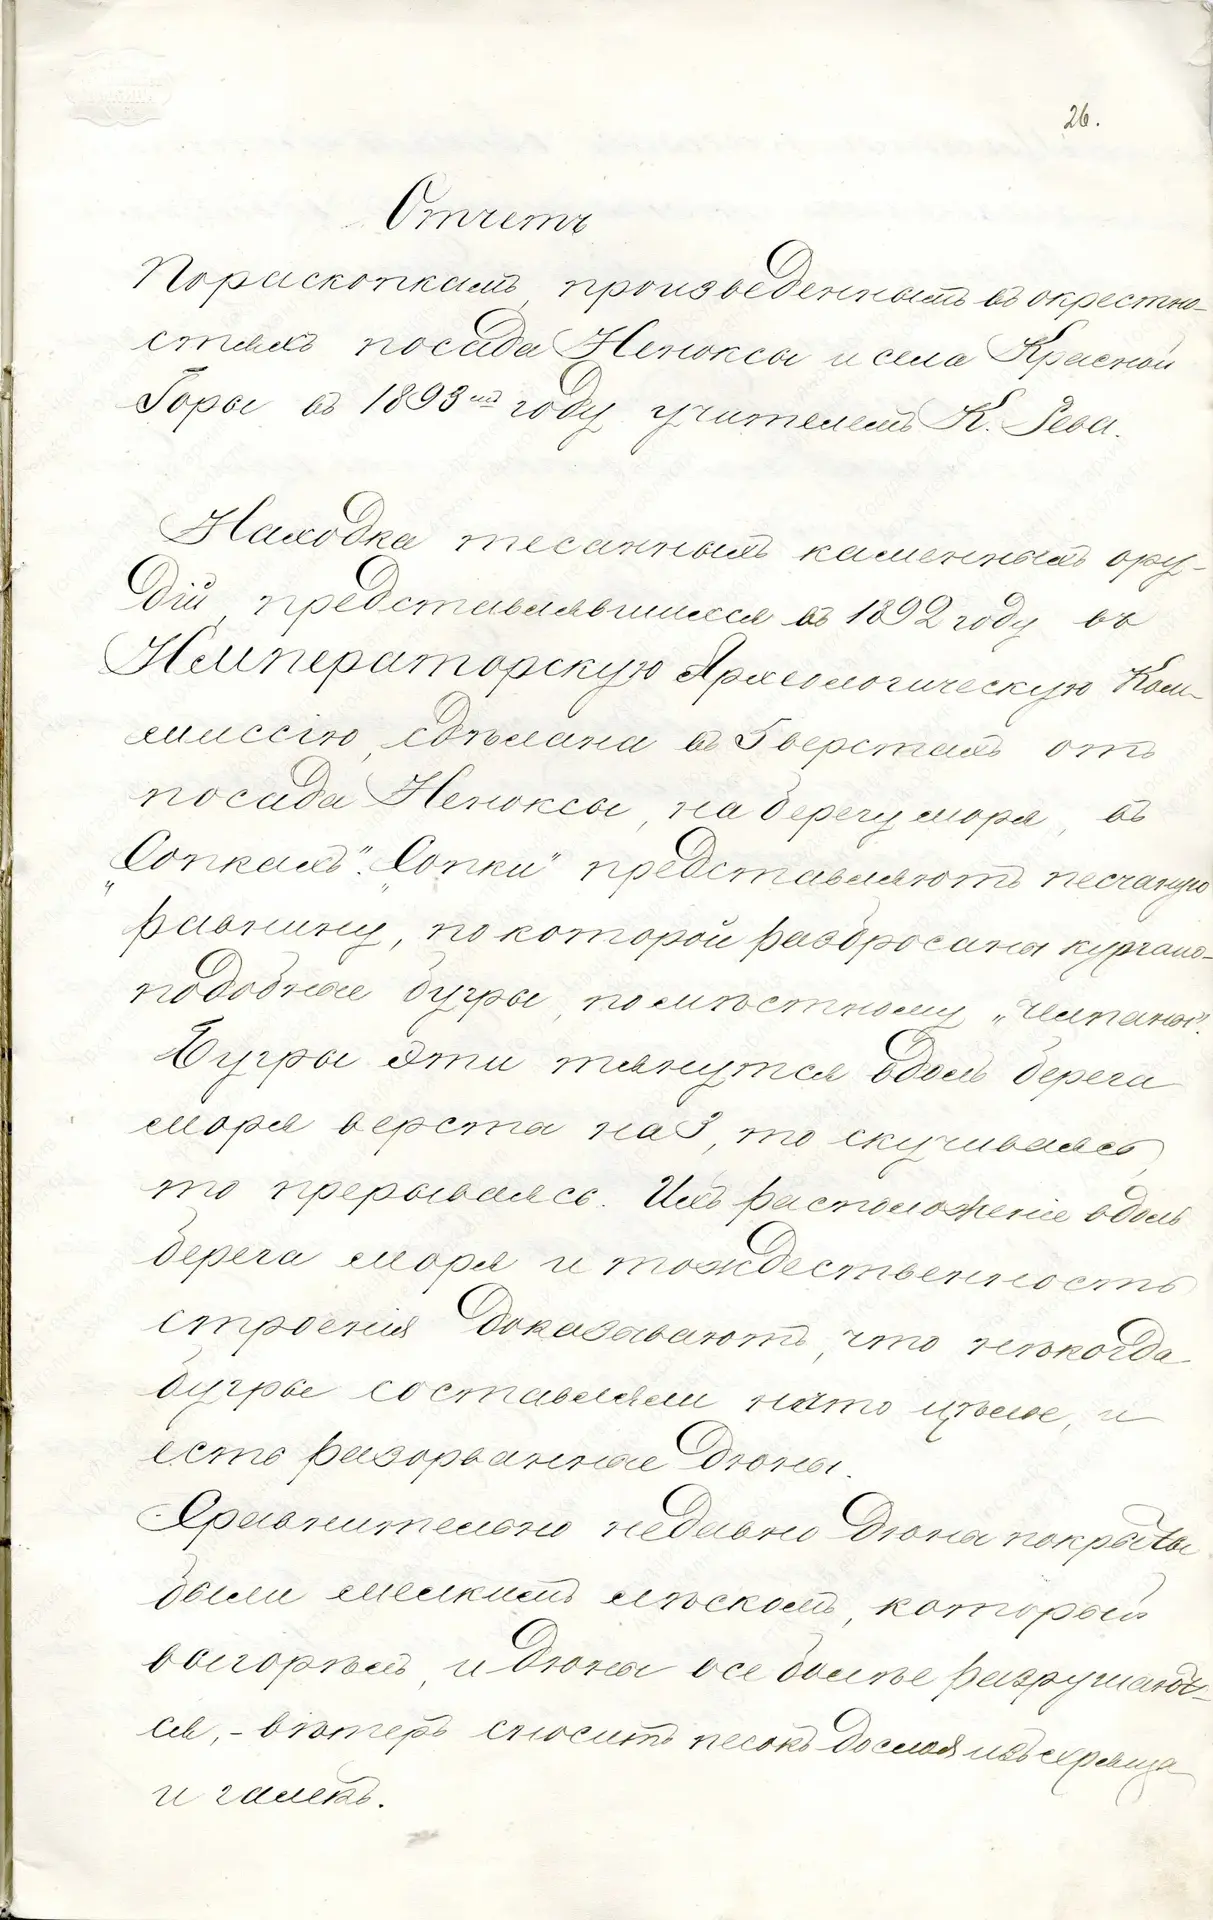 26.
Отчетъ
По раскопкамъ, произведеннымъ въ окрестно-
стяхъ посада Неноксы и села Красной
Горы въ 1893 году учителемъ К. Рева.
Находка тесанныхъ каменныхъ ору-
дій, представлявшихся въ 1892 году въ
Императорскую Археологическую Ком-
миссію, сдѣлана въ 5 верстахъ отъ
посада Неноксы, на берегу моря, въ
„Сопкахъ". „Сопки" представляютъ песчаную
равнину, по которой разбросаны кургано-
подобные бугры, по мѣстному „челпаны".
Бугры эти тянутся вдоль берега
моря верста на 3, то скучиваясь,
то прерываясь. Ихъ расположеніе вдоль
берега моря и тождественность
строенія доказываютъ, что нѣкогда
бугры составляли нѣчто цѣлое, и
есть разорванные дюны.
Сравнительно недавно дюны покрыты
были мелкимъ лѣскомъ, который
выгорѣлъ, и дюны все болѣе разрушают-
ся, - вѣтеръ сноситъ песокъ до слоя изъ хряща
и галекъ.